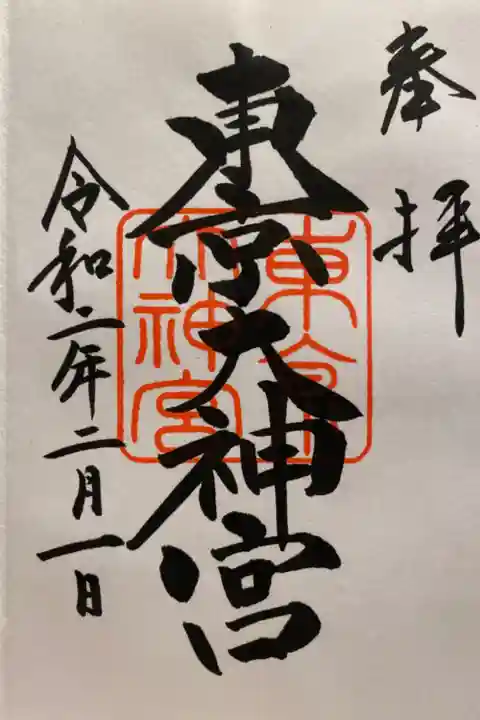 奉拝
東京大神宮
東京大神宮
令和二年二月一日